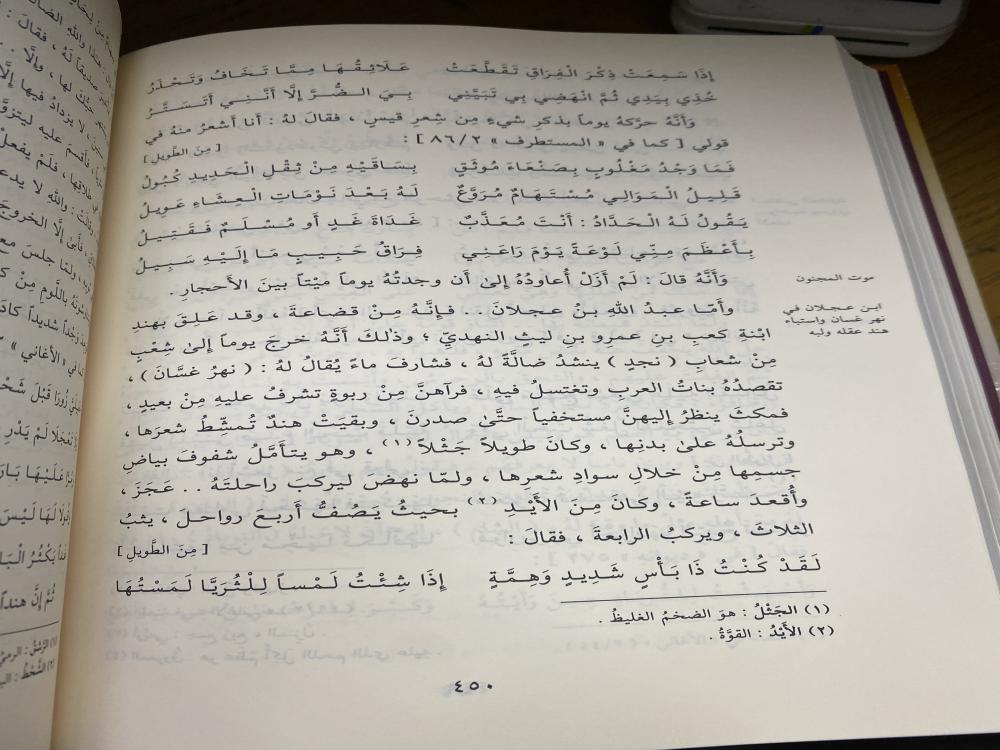 إِذَا سَمِعَتْ ذِكْرَ الْفِرَاقِ تَقَطَّعَتْ عَلَائِقُهَا مِمَّا تَخَافُ وَتَحْذَرُ
خُذِي بِيَدِي ثُمَّ انْهَضِي بِي تَبَيَّنِي بِيَ الضُّرَّ إِلَّا أَنَّنِي أَتَسَتَّرُ
وَأنَّهُ حرَّكهُ يوماً بذكرِ شيءٍ مِن شِعرِ قيسٍ ، فقالَ لهُ : أنا أشعرُ منهُ في
قولي [ كما في « المستطرف » ٨٦/٢ ] :
[ مِنَ الطَّويلِ ]
فَمَا وَجْدُ مَغْلُوبٍ بِصَنْعَاءَ مُوثَقٍ بِسَاقَيْهِ مِنْ ثِقْلِ الْحَدِيدِ كُبُولُ
قَلِيلُ الْمَوَالِي مُسْتَهَامٌ مُرَوَّعٌ لَهُ بَعْدَ نَوْمَاتِ الْعِشَاءِ عَوِيلُ
يَقُولُ لَهُ الْحَدَّادُ : أَنْتَ مُعَذَّبٌ غَدَاةَ غَدٍ أَو مُسْلَمٌ فَقَتِيلُ
بِأَعْظَمَ مِنِّي لَوْعَةً يَوْمَ رَاعَنِي فِرَاقُ حَبِيبٍ مَا إِلَيْهِ سَبِيلُ
وَأنَّهُ قالَ : لَمْ أزَلْ أُعاودُهُ إلىٰ أن وجدتُهُ يوماً ميْتاً بينَ الأحجارِ .
موت المجنون
وأمّا عبدُ اللهِ بنُ عجلانَ . . فإنَّهُ مِنْ قضاعةَ ، وقد عَلِقَ بهندِ
ابن عجلان في
نهر غسان واستباء
هند عقله ولبه
ابْنةِ كعبِ بنِ عمرِو بنِ ليثٍ النهديِّ ؛ وذٰلكَ أنَّهُ خرجَ يوماً إلىٰ شِعْبٍ
مِنْ شعابِ ( نجدٍ ) ينشدُ ضالَّةً لهُ ، فشارفَ ماءً يُقالُ لهُ : ( نهرُ غسَّانَ ) ،
تقصدُهُ بناتُ العربِ وتغتسلُ فيهِ ، فرآهنَّ مِنْ ربوةٍ تشرفُ عليهِ مِنْ بعيدٍ ،
فمكثَ ينظرُ إليهنَّ مستخفياً حتَّىٰ صدرنَ ، وبقيَتْ هندٌ تُمشِّطُ شعرَها ،
وترسلُهُ علىٰ بدنِها ، وكانَ طويلاً جَثْلاً (١) ، وهو يتأمَّلُ شفوفَ بياضِ
جسمِها مِنْ خلالِ سوادِ شعرِها ، ولمّا نهضَ ليركبَ راحلتَهُ . . عَجَزَ ،
وأُقعدَ ساعةً ، وكانَ مِنَ الأَيْدِ (٢) بحيثُ يَصُفُّ أربعَ رواحلَ ، يثبُ
الثلاثَ ، ويركبُ الرابعةَ ، فقالَ :
[ مِنَ الطَّويلِ ]
لَقَدْ كُنْتُ ذَا بَأْسٍ شَدِيدٍ وَهِمَّةٍ إِذَا شِئْتُ لَمْساً لِلْثُرَيَّا لَمَسْتُهَا
(١) الجَثْلُ : هوَ الضخمُ الغليظُ .
(٢) الأَيْدُ : القوَّةُ .
٤٥٠